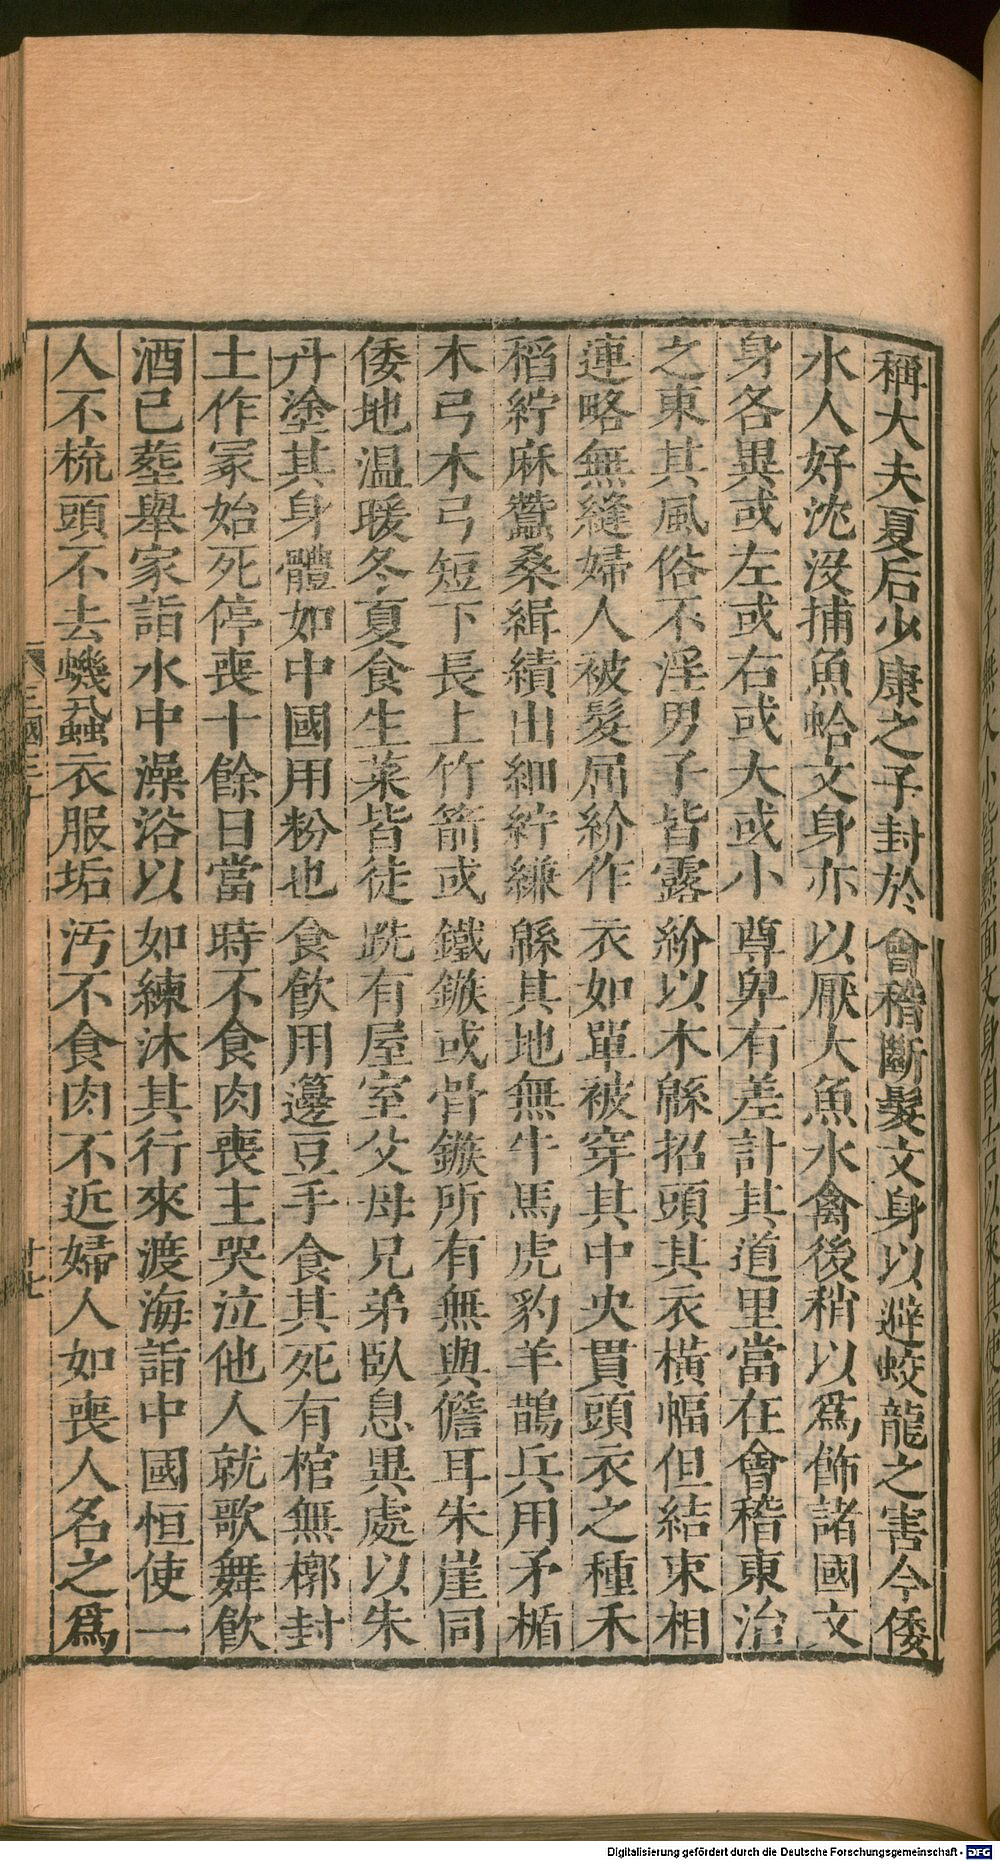 稱大夫夏后少康之子封於會稽斷髮文身以避蛟龍之害今倭
水人好沈沒捕魚蛤文身亦以厭大魚水禽後稍以爲飾諸國文
身各異或左或右或大或小尊卑有差計其道里當在會稽東治
之東其風俗不淫男子皆露紒以木緜招頭其衣橫幅但結束相
連略無縫婦人被髮屈紒作衣如單被穿其中央貫頭衣之種禾
稻紵麻蠶桑緝績出細紵縑緜其地無牛馬虎豹羊鵲兵用矛楯
木弓木弓短下長上竹箭或鐵鏃或骨鏃所有無與儋耳朱崖同
倭地温暖冬夏食生菜皆徒跣有屋室父母兄弟臥息異處以朱
丹塗其身體如中國用粉也食飮用籩豆手食其死有棺無槨封
土作冢始死停喪十餘日當時不食肉喪主哭泣他人就歌舞飮
酒已葬舉家詣水中澡浴以如練沐其行來渡海詣中國恒使一
人不梳頭不去蟣蝨衣服垢汚不食肉不近婦人如喪人名之爲
三國三十
十七
Digitalisierung gefördert durch die Deutsche Forschungsgemeinschaft - DFG